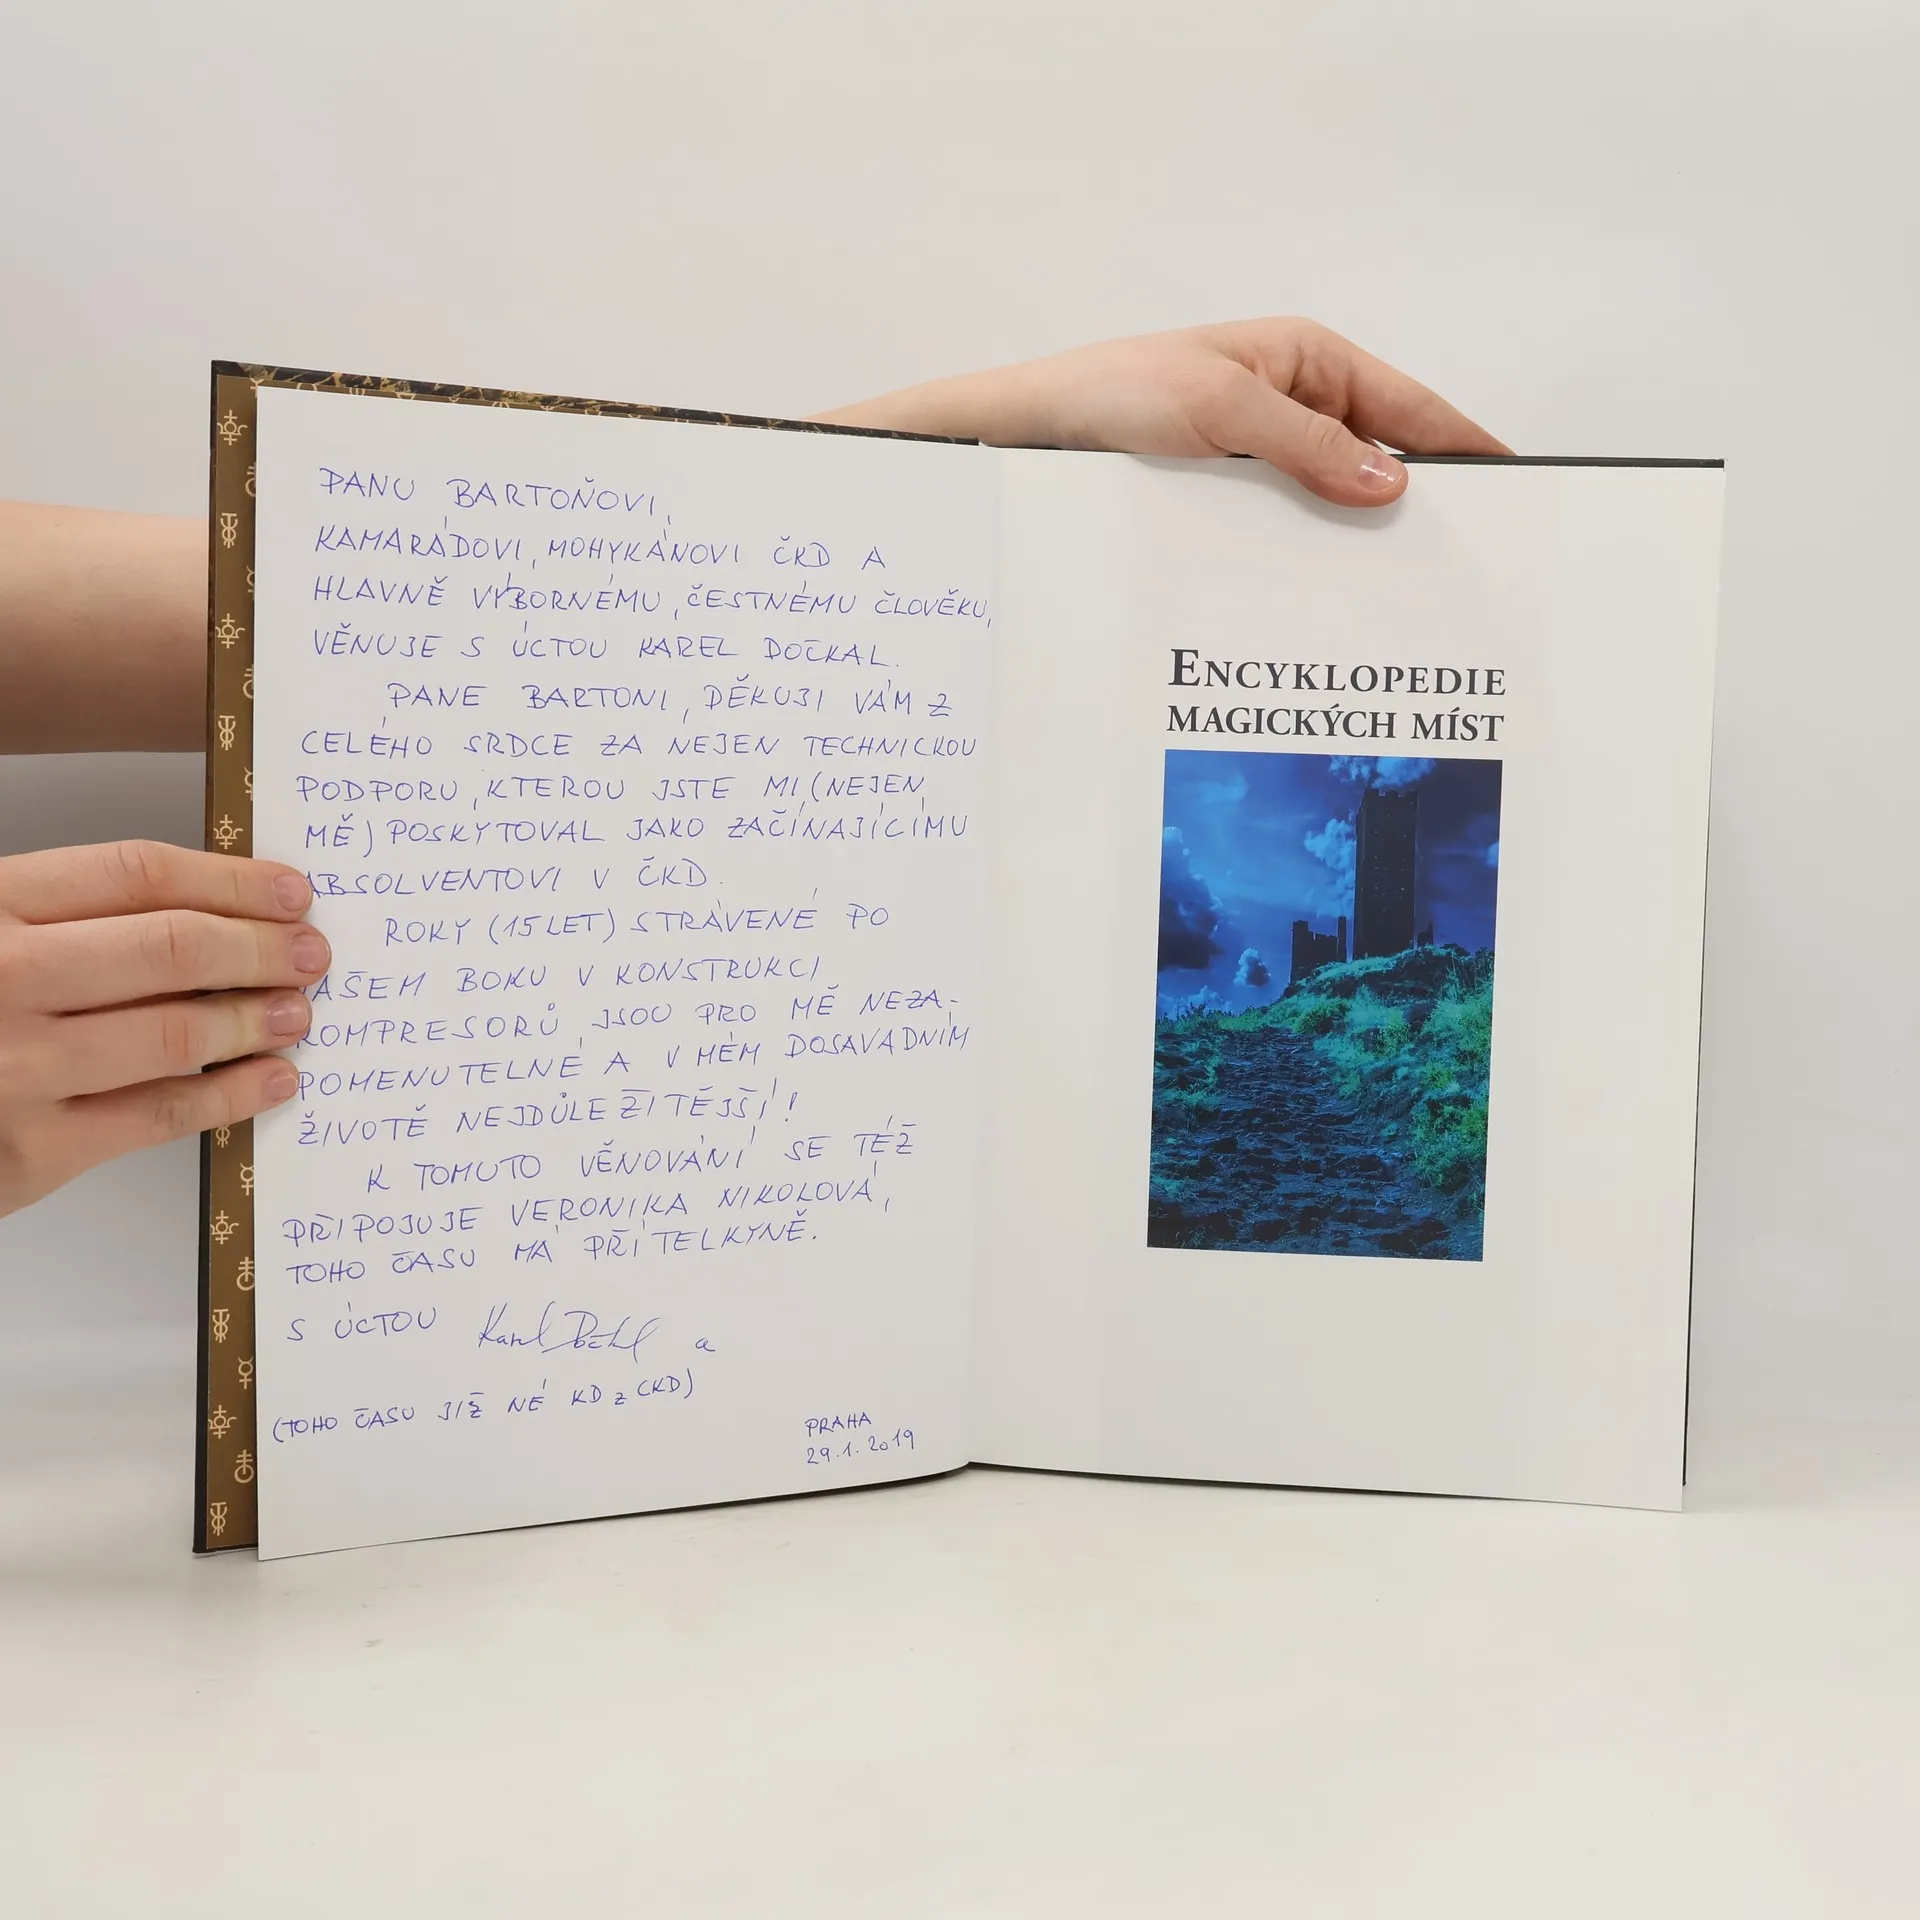 PANU BARTOŇOVI,
KAMARÁDOVI, MOHYKÁNOVI ČKD A
HLAVNĚ VÝBORNÉMU, ČESTNÉMU ČLOVĚKU,
VĚNUJE S ÚCTOU KAREL DOČKAL.
PANE BARTONI, DĚKUJI VÁM Z
CELÉHO SRDCE ZA NEJEN TECHNICKOU
PODPORU, KTEROU JSTE MI (NEJEN
MĚ) POSKYTOVAL JAKO ZAČÍNAJÍCÍMU
ABSOLVENTOVI V ČKD.
ROKY (15 LET) STRÁVENÉ PO
AŠEM BOKU V KONSTRUKCI
KOMPRESORŮ, JSOU PRO MĚ NEZA-
POMENUTELNÉ A V MÉM DOSAVADNÍM
ŽIVOTĚ NEJDŮLEŽITĚJŠÍ!
K TOMUTO VĚNOVÁNÍ SE TÉŽ
PŘIPOJUJE VERONIKA NIKOLOVÁ,
TOHO ČASU MÁ PŘÍTELKYNĚ.
S ÚCTOU Karel Dočkal a
(TOHO ČASU JIŽ NÉ KD z ČKD)
PRAHA
29.1.2019
ENCYKLOPEDIE
MAGICKÝCH MÍST